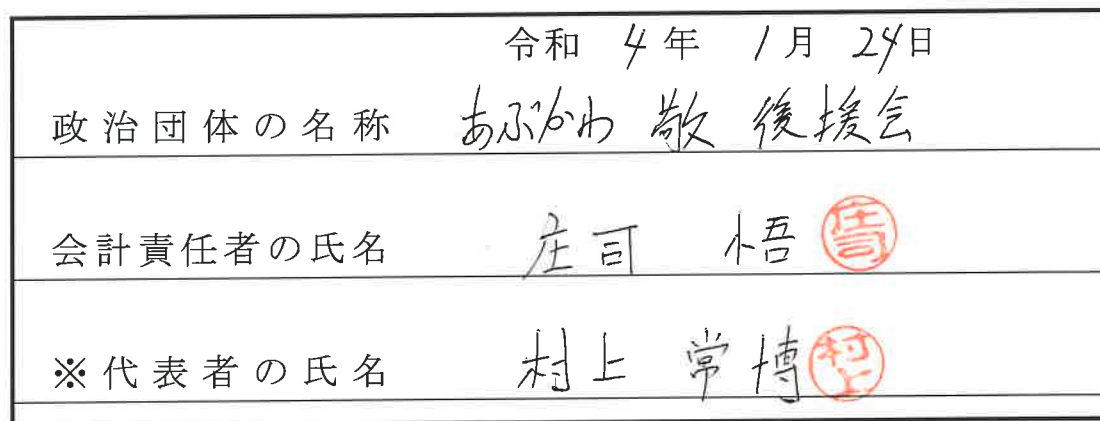 令和 4年 1月 24日
政治団体の名称 あぶかわ 敬 後援会
会計責任者の氏名 庄司 悟 庄司
※代表者の氏名 村上 常博 村上